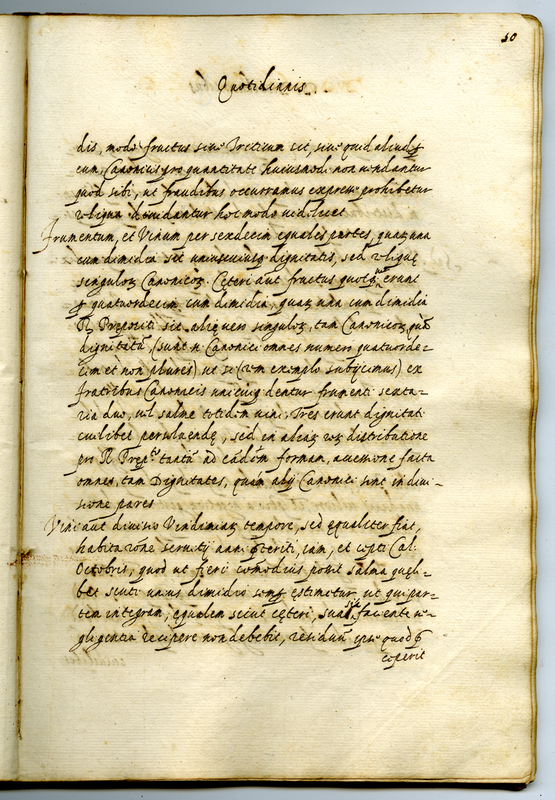 50
Quotidianis
dis, modo fructus siue Triticum sit, siue quid aliud
cum Canonicus pro quantitate huiusmodi non uendantur
quod sibi, ut fraudibus occurramus expresse prohibetur
reliqua diuidantur hoc modo uidelicet
Frumentum, et Vinum per sexdecim equales partes, quaꝝ una
cum dimidia sit uniuscuiusq dignitatis, sed reliquę
singuloꝝ Canonicoꝝ. Cęteri aut fructus erunt
quatuordecim cum dimidia, quaꝝ una cum dimidia
R. Prepositi sit, singuloꝝ, tam Canonicoꝝ quā
dignitatū, (sunt n. Canonici omnes numero quatuorde-
cim et non plures) ut si (rem exemplo subijcimus) ex
fratribus Canonicis unicuiq dentur frumenti sexta-
ria duo, uel salme totidem uini. Tres erunt dignitati
cuilibet persoluendę, sed in aliaꝝ reꝝ distributione
pro R. Prep.to tantū ad eādem formam, accessione facta
omnes, tam Dignitates, quam alij Canonici sint in diui-
sione pares
Vini aut diuisio Vindimiaꝝ tempore, sed ęqualiter fiat,
habita rōne seruitij anni pręteriti, iam, et cepti Cal.
Octobris, quod ut fieri comodius possit salma quęli-
bet scuti unius dimidio semꝑ estimetur, ut qui par-
tem integram, ęqualem sciut cęteri, sua sic faciente ne-
gligentia recipere non debebit, residuū ipse
ceperit